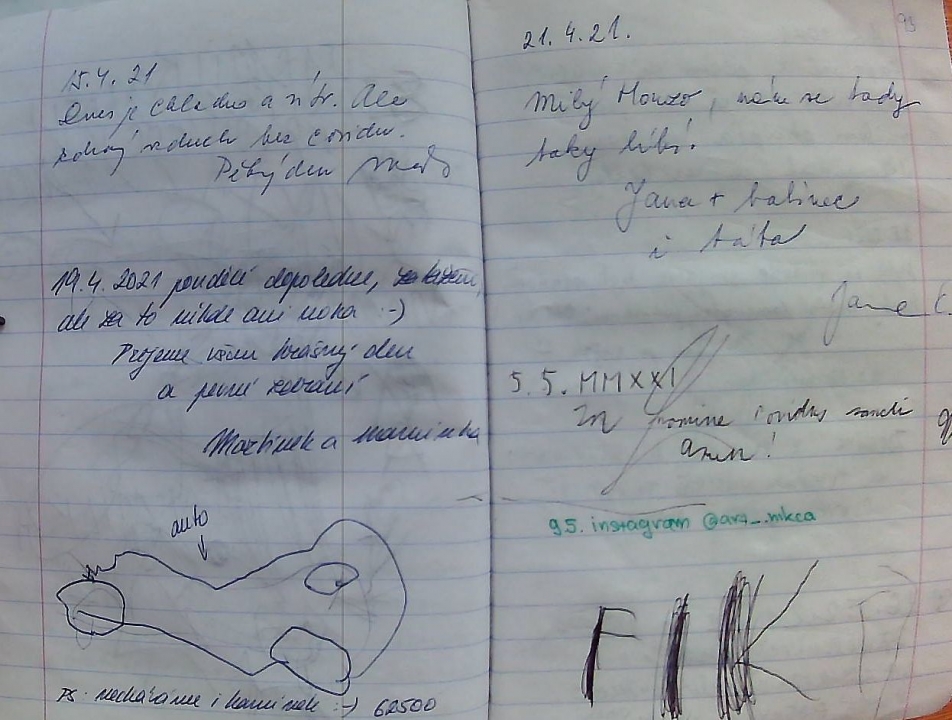 15.4.21
Dnes je chladno a vítr. Ale
vzduch bez covidu.
Pěkný den
19.4.2021 pondělí dopoledne, zataženo,
ale za to nikde ani noha :-)
Přejeme všem krásný den
a pevné zdraví
Martínek a maminka
auto
PS: necháváme i kamínek :-) 62500
93
21.4.21.
Milý Honzo, nám se tady
taky líbí!
Jana + balinec
i táta
Jana
5.5. MMXXI
covidus
amen!
95. instagram @art_.mkca
FIK